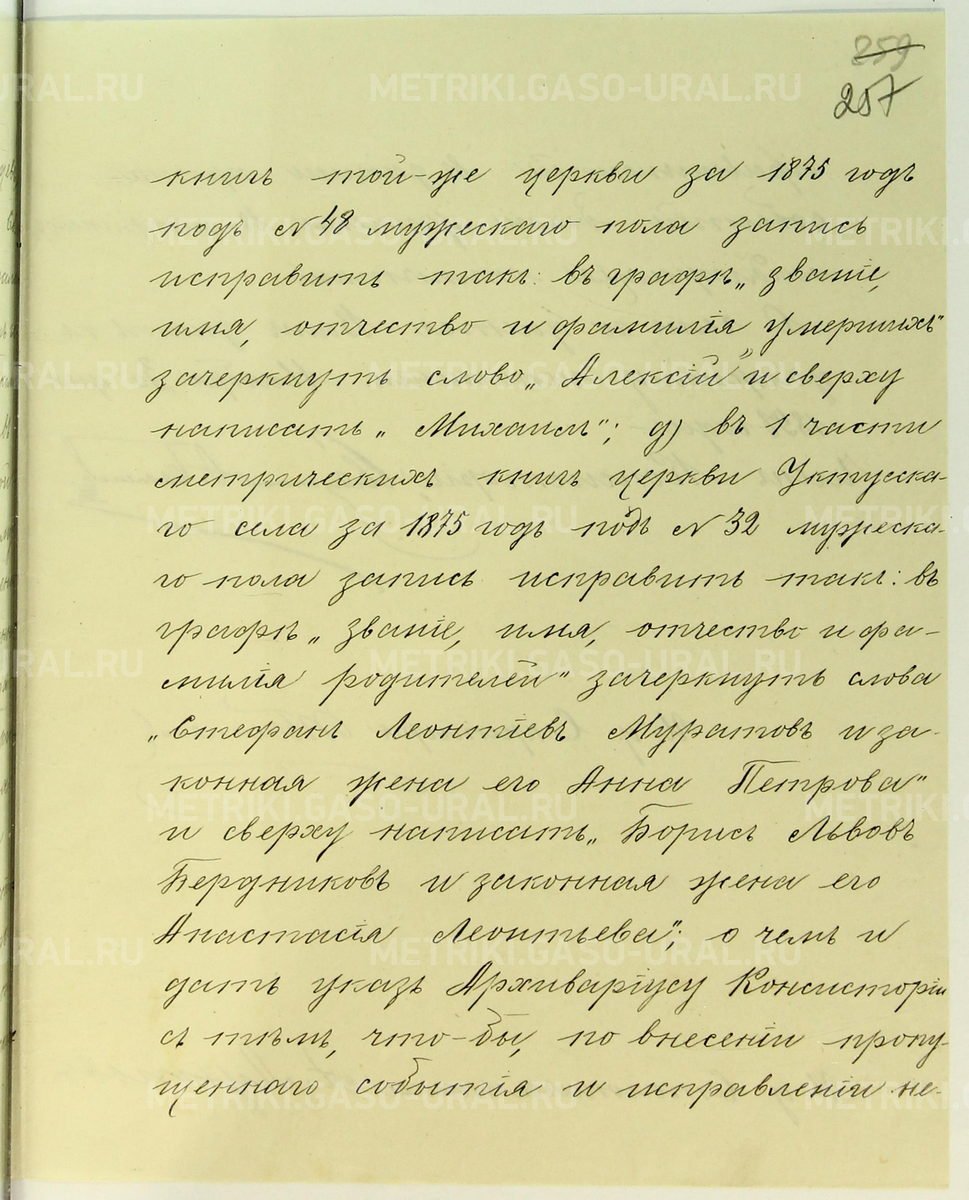 259
257
книгъ той-же церкви за 1875 годъ
подъ № 48 мужескаго пола запись
исправить такъ: въ графѣ „званіе,
имя, отчество и фамилія умершихъ"
зачеркнуть слово „Алексій" и сверху
написать „Михаилъ"; д) въ 1 части
метрическихъ книгъ церкви Уктусска-
го села за 1875 годъ подъ № 32 мужеска-
го пола запись исправить такъ: въ
графѣ „званіе, имя, отчество и фа-
милія родителей" зачеркнуть слова
„Стефанъ Леонтіевъ Муратовъ и за-
конная жена его Анна Петрова"
и сверху написать „Борисъ Львовъ
Бердниковъ и законная жена его
Анастасія Леонтьева"; о чемъ и
дать указъ Архиваріусу Консисторіи
съ тѣмъ, что-бы, по внесеніи пропу-
щеннаго событія и исправленіи не-
METRIKI.GASO-URAL.RU